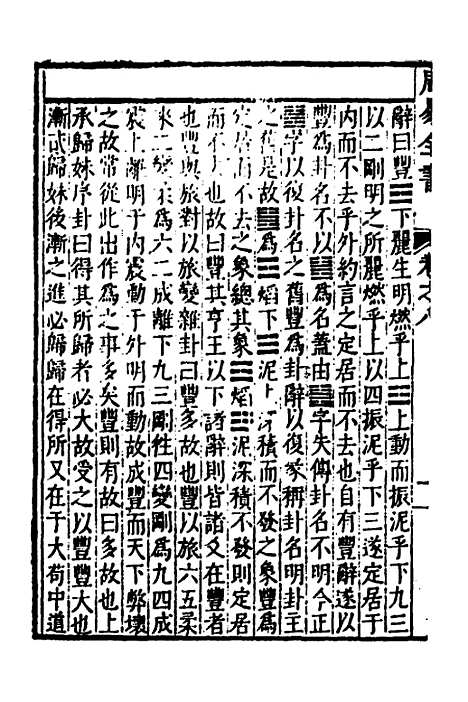 周易全書 卷之八
辭曰豐☲下麗生明燃乎上☳上動而振泥乎下九三
以二剛明之所麗燃乎上以四振泥乎下三遂定居于
内而不去乎外約言之定居而不去也自有豐辭遂以
豐爲卦名不以䷶爲名蓋由䷶字失傳卦名不明今正
䷶字以復卦名之舊豐爲卦辭以復彖稱卦名明卦王
之舊是故䷶爲☲熖下☳泥上深積而不發之象豐爲
定居而不去之象總其象☲熖☳泥深積不發則定居
而不去也故曰豐其亨王以下諸辭則皆諸爻在豐者
也豐與旅對以旅變雜卦曰豐多故也豐以旅六五柔
來二變柔爲六二成離下九三剛徃四變剛爲九四成
震上離明于内震動于外明而動故成豐而天下弊壞
之故常從此出作爲之事多矣豐則有故曰多故也上
承歸妹序卦曰得其所歸者必大故受之以豐豐大也
漸貳歸妹後漸之進必歸歸在得所又在于大苟中道